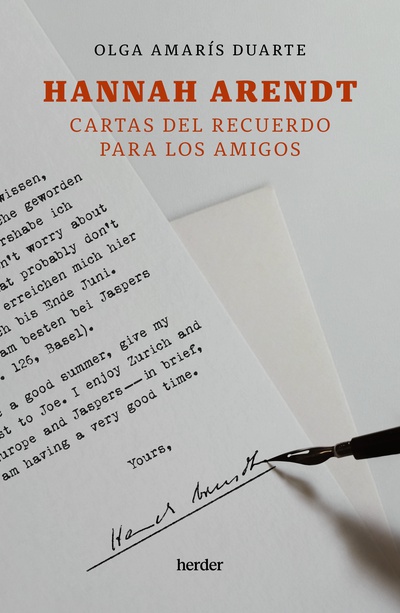 OLGA AMARÍS DUARTE
HANNAH ARENDT
CARTAS DEL RECUERDO
PARA LOS AMIGOS
wissen,
che geworden
ershabe ich
n't worry about
at probably don't
erreichen mich hier
h bis Ende Juni.
am besten bei Jaspers
. 126, Basel).
e a good summer, give my
st to Joe. I enjoy Zurich and
urope and Jaspers——in brief,
am having a very good time.
Yours,
Hannah Arendt
herder